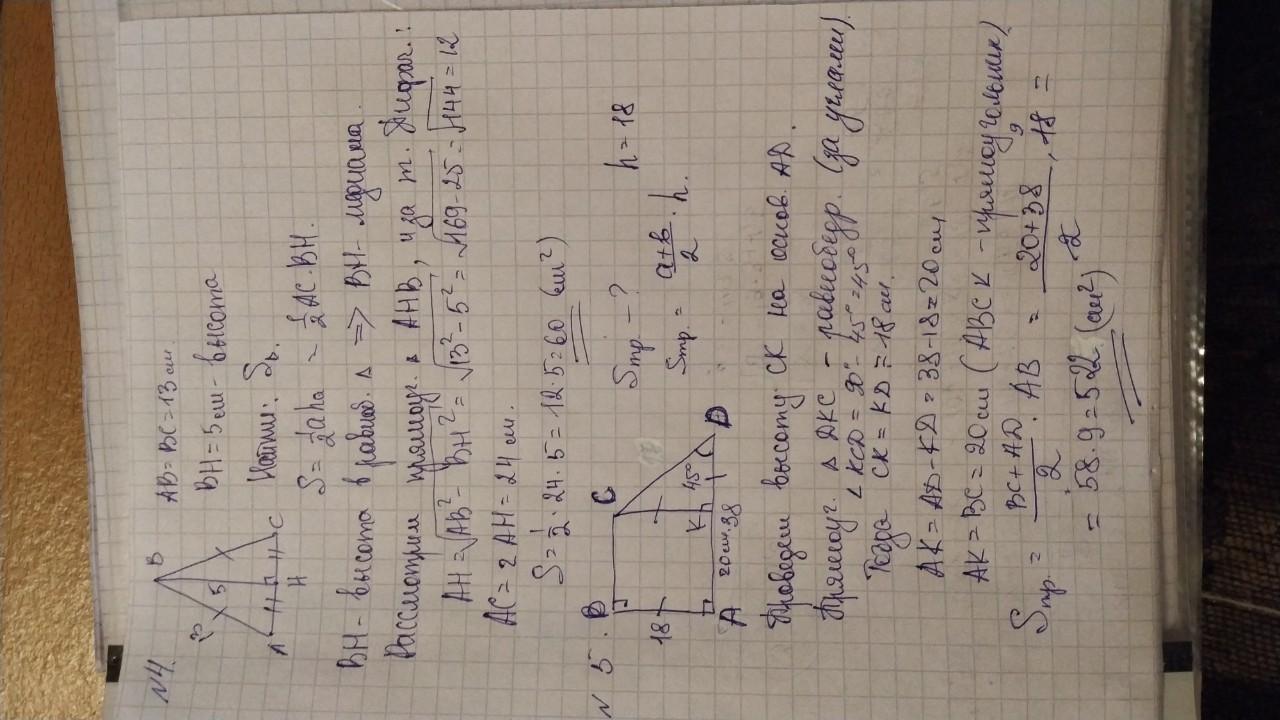 N4.
B
13
5
A
H
C
AB = BC = 13 см.
BH = 5 см - высота
Найти: S△.
S = 1/2 aha = 1/2 AC · BH.
BH - высота в равноб. △ => BH - медиана.
Рассмотрим прямоуг. △ AHB, и за т. Пифаг.:
AH = √AB² - BH² = √13² - 5² = √169-25 = √144 = 12
AC = 2 AH = 24 см.
S = 1/2 · 24 · 5 = 12 · 5 = 60 (см²)
N 5.
B
C
18
45°
A
K
D
20см.
38
Sтр - ?
h = 18
Sтр. = a+b/2 · h.
Проведем высоту CK на основ. AD.
Прямоуг. △ DKC - равнобедр. (за углами).
∠ KCD = 90° - 45° = 45°
Тогда CK = KD = 18 см.
AK = AD - KD = 38 - 18 = 20 см
AK = BC = 20 см (ABCK - прямоугольник)
Sтр = BC + AD/2 · AB = 20+38/2 · 18 =
9
= 58 · 9 = 522 (см²)